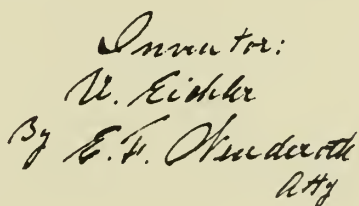 Inventor:
U. Eichler
By E. F. Wenderoth
Atty